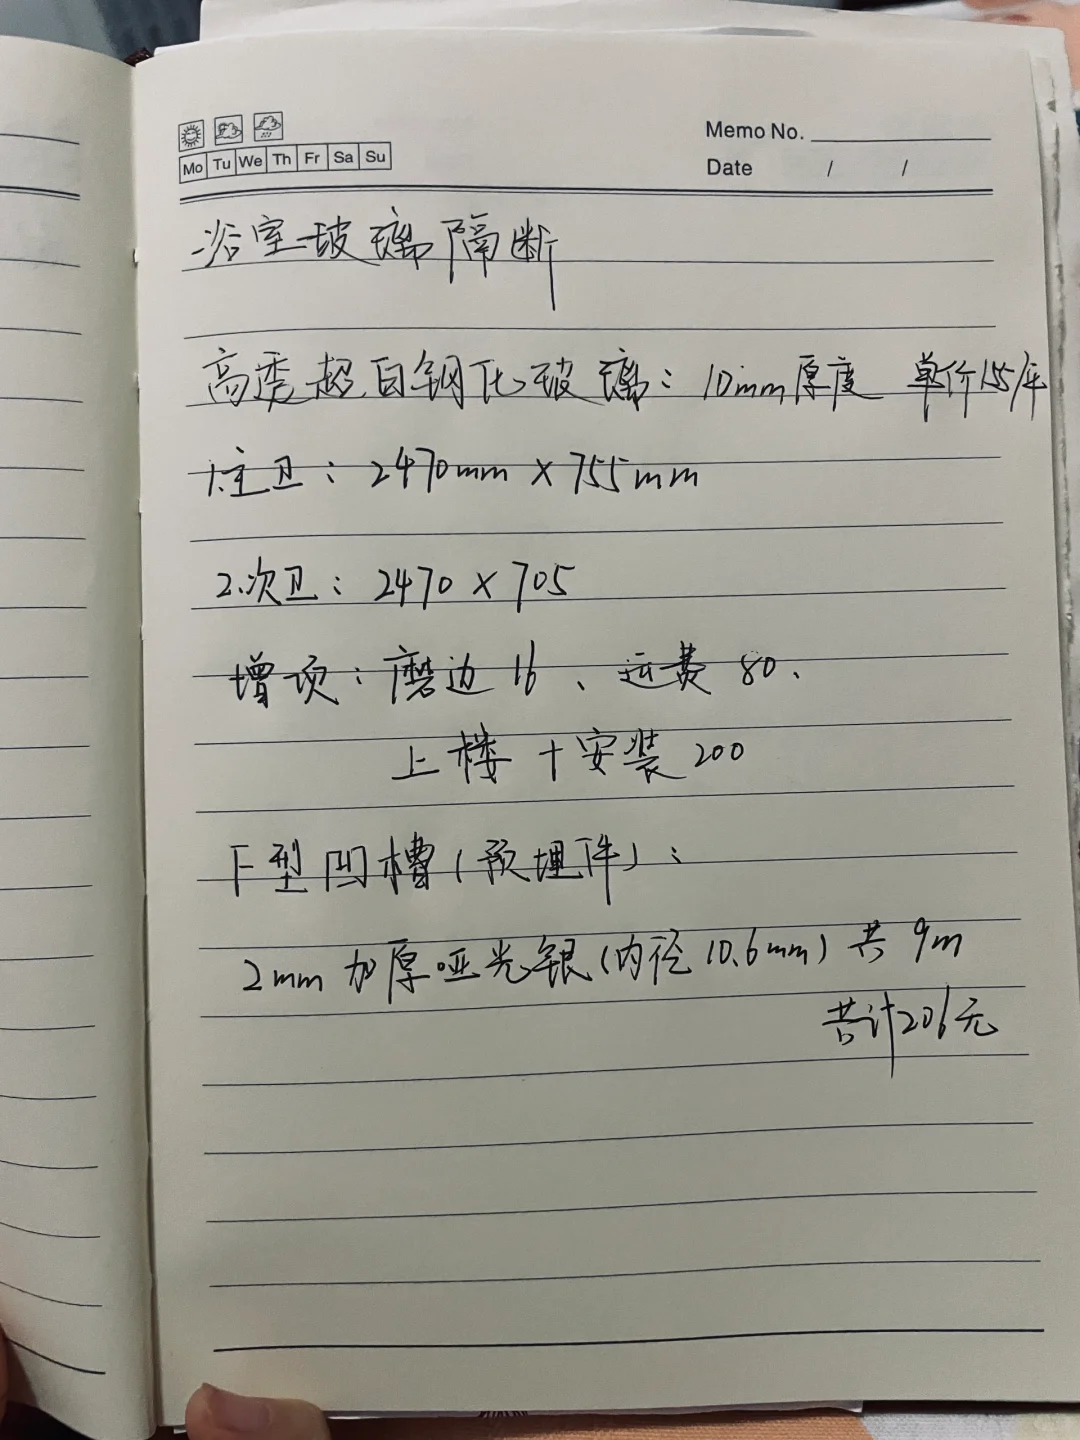 Mo Tu We Th Fr Sa Su
Memo No.
Date / /
浴室玻璃隔断
高透超白钢化玻璃：10mm厚度 单价155/平
1.主卫：2470mm×755mm
2.次卫：2470×705
增项：磨边16、运费80、
上楼+安装200
F型凹槽(预埋件)：
2mm加厚哑光银(内径10.6mm)共9m
共计206元